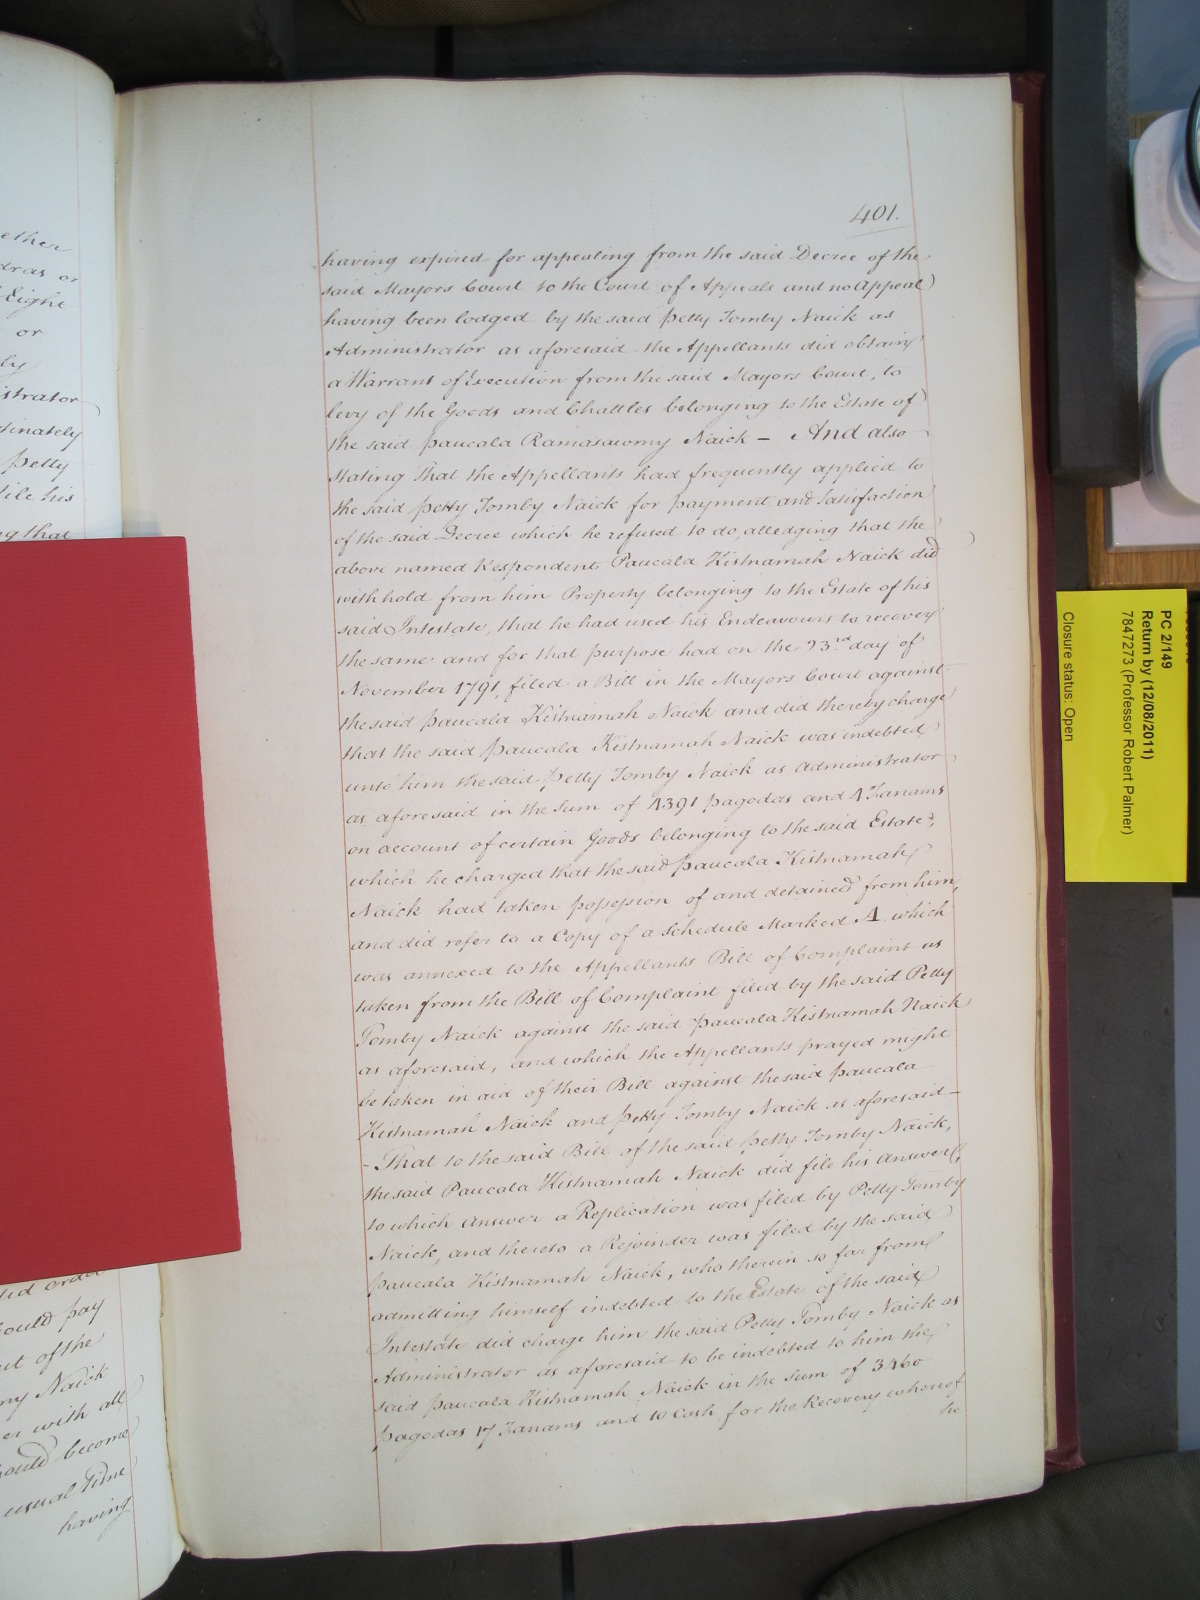 ether
dras or
Eight
or
ly
istrator
tinately
Petty
file his
ng that
did order
ould pay
ect of the
my Naick
er with all
hould become
usual Time
having
401.
having expired for appealing from the said Decree of the
said Mayors Court to the Court of Appeals and no Appeal
having been lodged by the said Petty Tomby Naick as
Administrator as aforesaid the Appellants did obtain
a Warrant of Execution from the said Mayors Court, to
levy of the Goods and Chattles belonging to the Estate of
the said Paucala Ramasawmy Naick – And also
stating That the Appellants had frequently applied to
the said Petty Tomby Naick for payment and Satisfaction
of the said Decree which he refused to do, alledging that the
above named Respondent Paucala Kistnamah Naick did
withhold from him Property belonging to the Estate of his
said Intestate, that he had used his Endeavours to recover
the same and for that purpose had on the 23rd day of
November 1791, filed a Bill in the Mayors Court against
the said Paucala Kistnamah Naick and did thereby charge
that the said Paucala Kistnamah Naick was indebted
unto him the said Petty Tomby Naick as Administrator
as aforesaid in the Sum of 4391 Pagodas and 4 Fanams
on account of certain Goods belonging to the said Estate,
which he charged that the said Paucala Kistnamah
Naick had taken possession of and detained from him,
and did refer to a Copy of a Schedule Marked A which
was annexed to the Appellants Bill of Complaint as
taken from the Bill of Complaint filed by the said Petty
Tomby Naick against the said Paucala Kistnamah Naick
as aforesaid, and which the Appellants prayed might
be taken in aid of their Bill against the said Paucala
Kistnamah Naick and Petty Tomby Naick as aforesaid –
– That to the said Bill of the said Petty Tomby Naick,
the said Paucala Kistnamah Naick did file his Answer,
to which Answer a Replication was filed by Petty Tomby
Naick, and thereto a Rejoinder was filed by the said
Paucala Kistnamah Naick, who therein so far from
admitting himself indebted to the Estate of the said
Intestate did charge him the said Petty Tomby Naick as
Administrator as aforesaid to be indebted to him the
said Paucala Kistnamah Naick in the Sum of 3460
Pagodas 17 Fanams and 10 Cash for the Recovery whereof
he
PC 2/149
Return by (12/08/2011)
7847273 (Professor Robert Palmer)
Closure status: Open